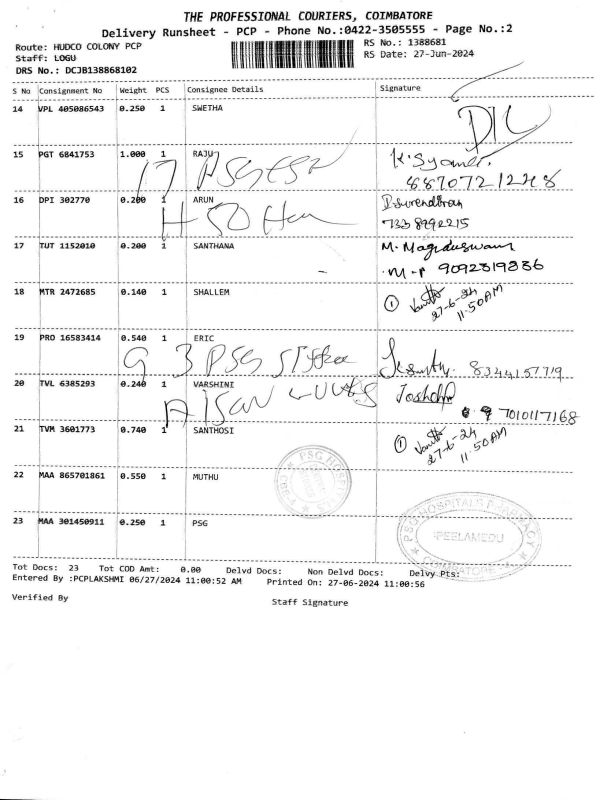 THE PROFESSIONAL COURIERS, COIMBATORE
Delivery Runsheet - PCP - Phone No.:0422-3505555 - Page No.:2
Route: HUDCO COLONY PCP
RS No.: 1388681
Staff: LOGU
RS Date: 27-Jun-2024
DRS No.: DCJB138868102
S No Consignment No Weight PCS Consignee Details Signature
14 VPL 405086543 0.250 1 SWETHA
15 PGT 6841753 1.000 1 RAJU
8870721248
16 DPI 302770 0.200 1 ARUN
P. Surendhran
7338992215
17 TUT 1152010 0.200 1 SANTHANA
9092319336
18 MTR 2472685 0.140 1 SHALLEM
1
27-6-24
11:50AM
19 PRO 16583414 0.540 1 ERIC
3 PSG
8344157719
20 TVL 6385293 0.240 1 VARSHINI
7010117168
21 TVM 3601773 0.740 1 SANTHOSI
1
27-6-24
11:50AM
22 MAA 865701861 0.550 1 MUTHU
PSG HOSPITALS
23 MAA 301450911 0.250 1 PSG
PSG HOSPITALS PHARMACY
PEELAMEDU
COIMBATORE - 4
Tot Docs: 23 Tot COD Amt: 0.00 Delvd Docs: Non Delvd Docs: Delvy Pts:
Entered By :PCPLAKSHMI 06/27/2024 11:00:52 AM Printed On: 27-06-2024 11:00:56
Verified By
Staff Signature